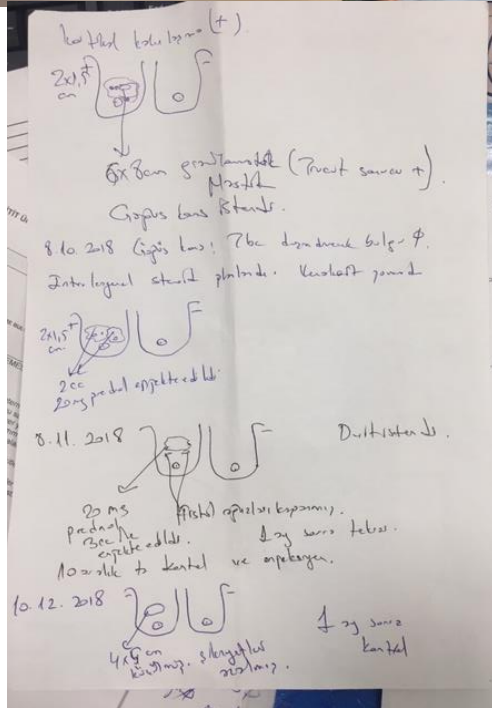 (+)
2x1,5
cm
6x8cm granülamatöz (Trucut sonucu +)
Mastit
Göğüs kons istendi.
8.10.2018 Göğüs kons: Tbc düşündürecek bulgu φ.
Intralezyonel steroid planlandı.
2x1,5
cm
2cc
20mg prednol enjekte edildi
8.11.2018
Dutlistendi.
20 mg
prednol
3cc ile
enjekte edildi.
fistül ağızları kapanmış.
1 ay sonra tekrar.
10 aralık ta kontrol ve enjeksiyon.
10.12.2018
4x4 cm
küçülmüş. şikayetleri
azalmış.
1 ay sonra
kontrol